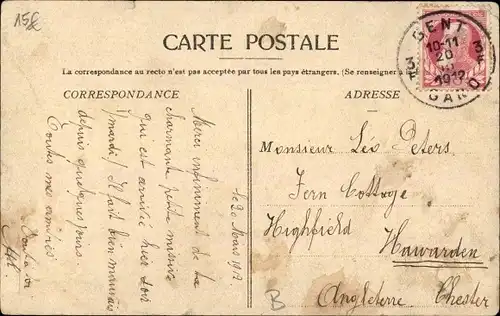 15€
CARTE POSTALE
La correspondance au recto n'est pas acceptée par tous les pays étrangers. (Se renseigner à
CORRESPONDANCE
ADRESSE
GENT
10-11
20
1912
GAND
le 20 Mars 1912
Merci infiniment de la
charmante petite missive
qui est arrivée hier soir
(mardi) Il fait bien mauvais
depuis quelques jours.
Toutes mes amitiés
Monsieur Léo Peters
Fern Cottage
Highfield
Hawarden
Chester
Angleterre
B